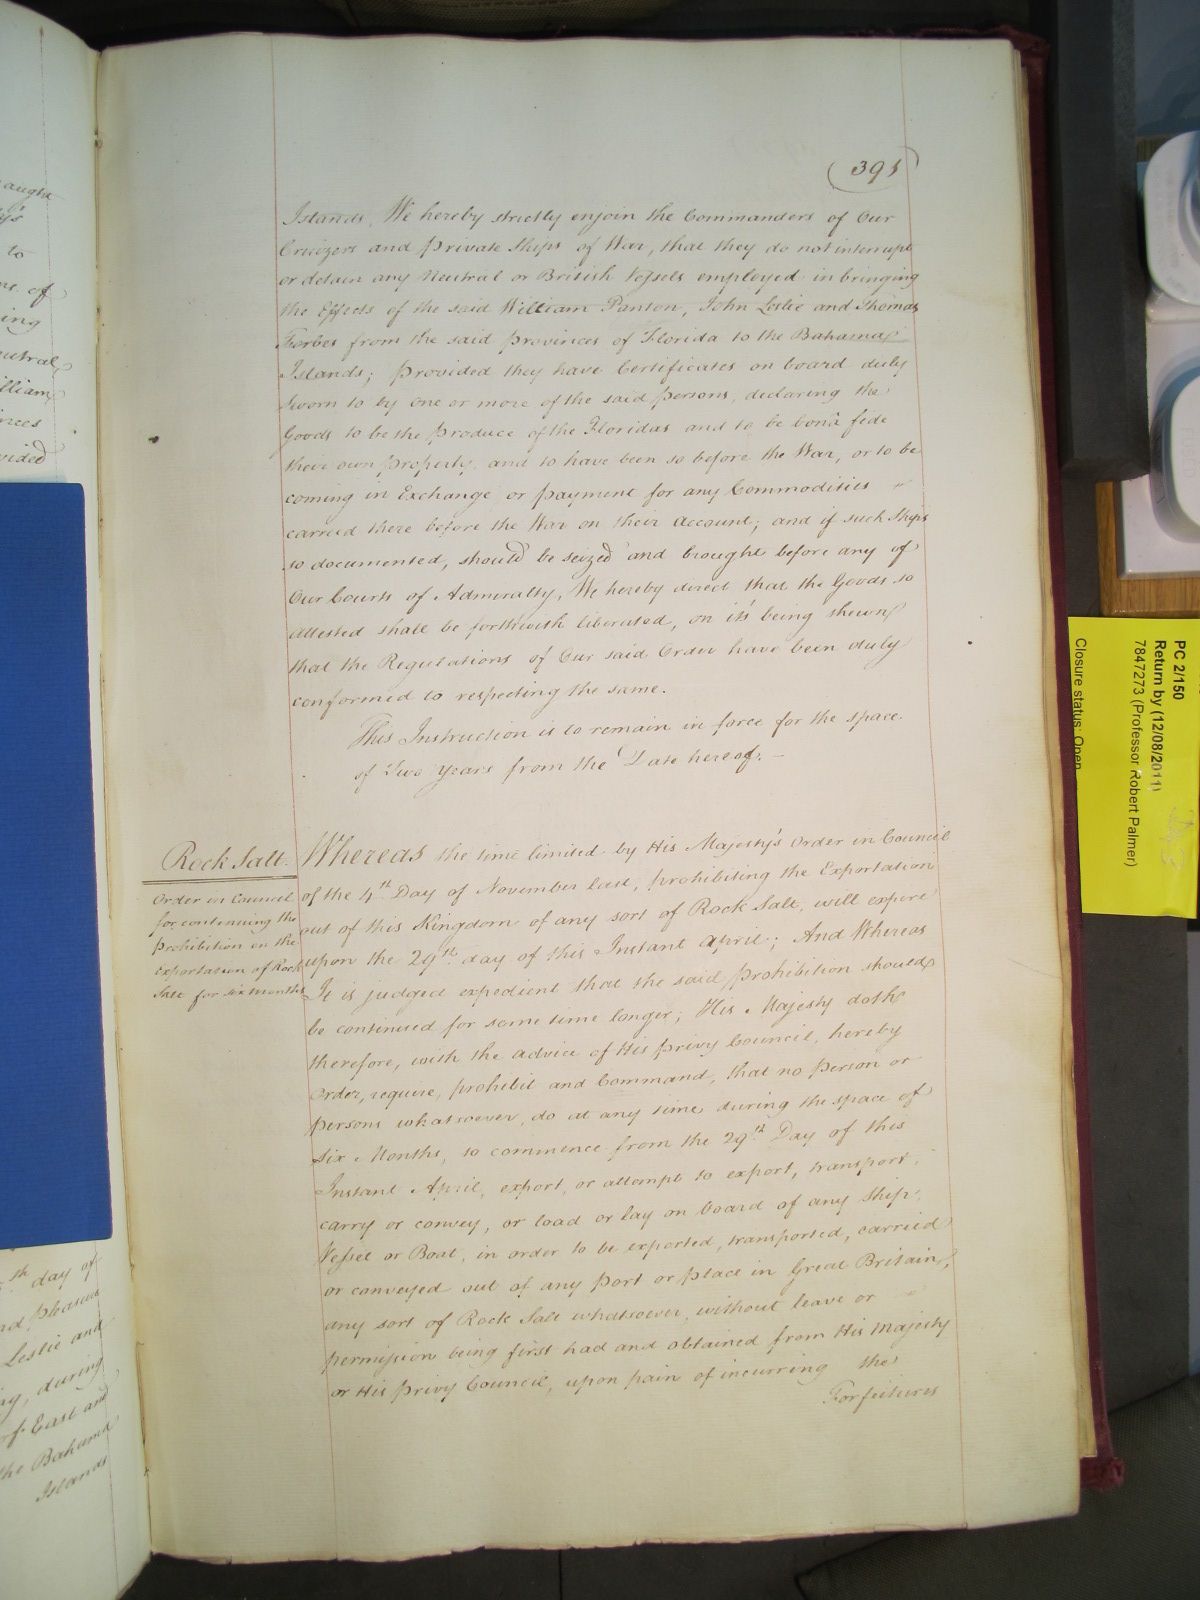 aught
to
ing
utral
illiam
inces
vided
th day of
nd pleasure
Leslie and
ng, during
of East and
the Bahama
Islands
(395)
Islands, We hereby strictly enjoin the Commanders of Our
Cruizers and private Ships of War, that they do not interrupt
or detain any Neutral or British Vessels employed in bringing
the Effects of the said William Panton, John Leslie and Thomas
Forbes from the said provinces of Florida to the Bahama
Islands; provided they have Certificates on board duly
sworn to by one or more of the said persons, declaring the
Goods to be the produce of the Floridas and to be bonâ fede
their own property, and to have been so before the War, or to be
coming in Exchange or payment for any Commodities
carried there before the War on their Account; and if such Ships
so documented, should be seized and brought before any of
Our Courts of Admiralty, We hereby direct that the Goods so
attested shall be forthwith liberated, on it's being shewn
that the Regulations of Our said Order have been duly
conformed to respecting the same.
This Instruction is to remain in force for the space
of Two Years from the Date hereof. –
Rock Salt.
Order in Council
for continuing the
prohibition on the
Exportation of Rock
Salt for six months
Whereas the time limited by His Majesty's Order in Council
of the 4th Day of November last, prohibiting the Exportation
out of this Kingdom of any sort of Rock Salt, will expire
upon the 29th day of this Instant April; And Whereas
It is judged expedient that the said prohibition should
be continued for some time longer; His Majesty doth
therefore, with the advice of His privy Council, hereby
Order, require, prohibit and Command, that no person or
persons whatsoever, do at any time during the space of
Six Months, to commence from the 29th Day of this
Instant April, export, or attempt to export, transport,
carry or convey, or load or lay on board of any Ship,
Vessel or Boat, in order to be exported, transported, carried
or conveyed out of any port or place in Great Britain,
any sort of Rock Salt whatsoever, without leave or
permission being first had and obtained from His Majesty
or His privy Council, upon pain of incurring the
Forfeitures
PC 2/150
Return by (12/08/2011)
7847273 (Professor Robert Palmer)
Closure status: Open